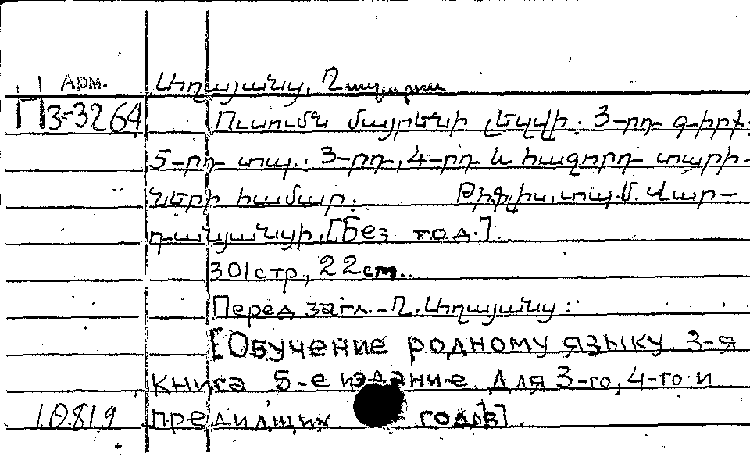 Арм.
Աղայանց, Ղազարոս
П3-3264
Ուսումն մայրենի լեզվի. 3-րդ գիրք.
5-րդ տպ.: 3-րդ, 4-րդ և հազորդ տարի-
ների համար. Թիֆլիս, տպ. Մ. Վար-
դանյանցի. [Без год.].
301стр, 22ст..
Перед загл. - Ղ. Աղայանց:
[Обучение родному языку 3-я
книга 5-е издание для 3-го, 4-го и
годов].
10819